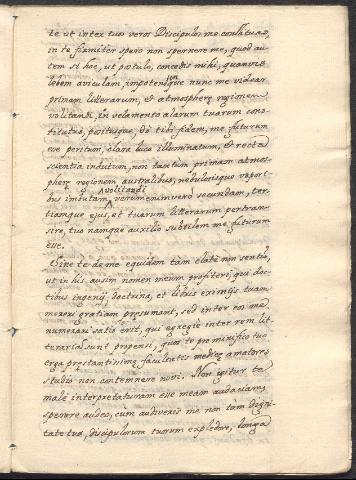 te ut inter tuos veros Discipulos me constituas,
in te firmiter spero non spernere me, quod au-
tem si hoc, ut postulo, concedis mihi, quamvis
debem aviculam, impotensque nunc me videar
non
primam litterarum, et atmospheræ regionem
volitandi, in velamento alarum tuarum cons-
titutus, positusque, do tibi fidem, me futurum
eve peritum, clara luce illuminatum, et recta
scientia indutum, non tantum primam atmos-
pheræ regionem australibus, nebulosisque vapori-
bus imbutam, verum enim vero secundam, ter-
avolitandi
tiamque ejus, et tuarum litterarum pertran-
sire, tuo namque auxilio sublilem me futurum
esse.
Sine te de me equidem tam elate non sentio,
ut in his ausim nomen meum profiteri, qui doc-
tibus ingenii, doctrina, et libris eximiis tuam
mereri gratiam presumant, sed inter eos me
numerari satis erit, qui egregie inter rem lit-
terariam sunt propensi, quos te pro mirifico tuo
erga prestantissime facultates medicæ amatores
studio non contemnere novi. Non igitur te
male interpretaturam esse meam audaciam,
sperare audeo, cum audiveris me non tam digni-
tate tua, discipulorum tuorum explere, longa